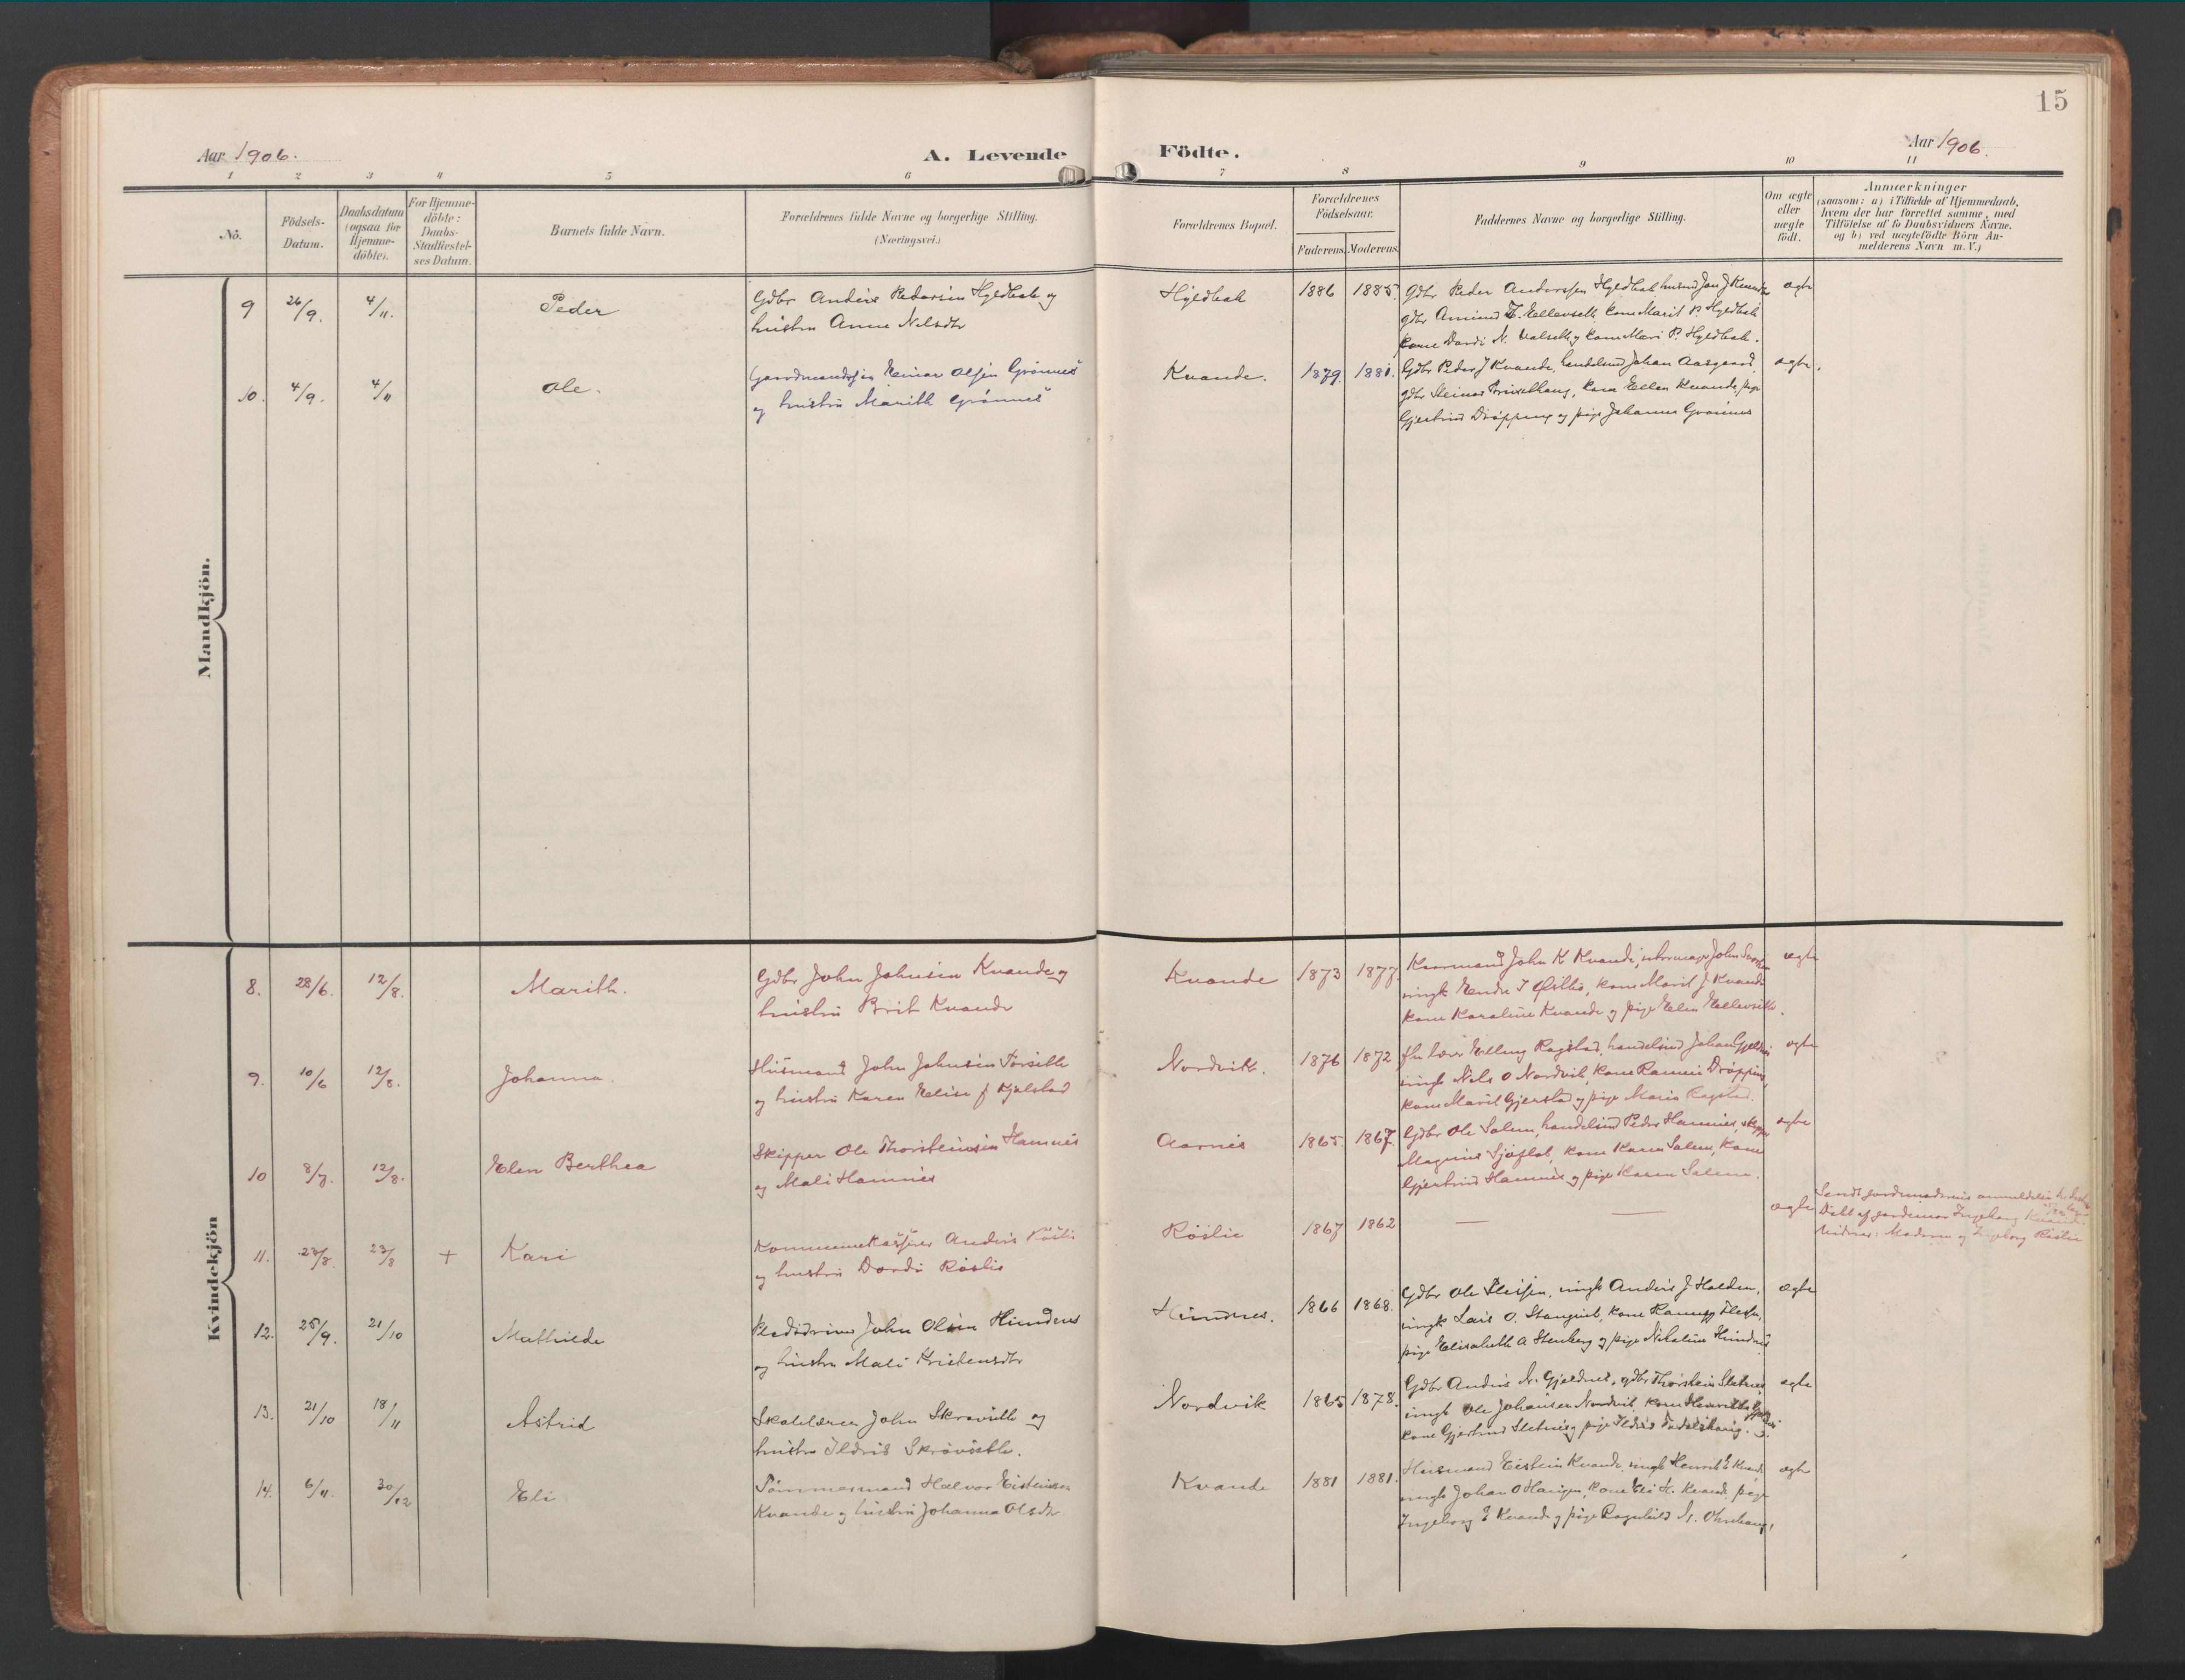 15
Aar 1906.
A. Levende Födte.
Aar 1906.
1 2 3 4 5 6 7 8 9 10 11
Nô.
Födsels-
Datum.
Daabsdatum
(ogsaa for
Hjemme-
döbte).
For Hjemme-
döbte:
Daabs-
Stadfæstel-
ses Datum.
Barnets fulde Navn.
Forældrenes fulde Navne og borgerlige Stilling.
(Næringsvei.)
Forældrenes Bopæl.
Forældrenes
Födselsaar.
Faderens. Moderens.
Faddernes Navne og borgerlige Stilling.
Om ægte
eller
uægte
födt.
Anmærkninger
(saasom: a) i Tilfælde af Hjemmedaab,
hvem der har forrettet samme, med
Tilföielse af to Daabsvidners Navne,
og b) ved uægtefödte Börn An-
melderens Navn m. V.)
Mandkjön.
9 26/9. 4/11. Peder
Gdbr Anders Pedersen Hyldbak og
hustru Anne Nilsdtr
Hyldbak 1886 1885.
Gdbr Peder Anderssen Hyldbak, husmd Jon J Kvande
gdbr Amund Ellevseth kone Marit P. Hyldbak
kone Dordi N. Valseth og kone Mari P. Hyldbak.
ægte
10. 4/9. 4/11 Ole.
Gaardmandssøn Einar Olsen Grønnes
og hustru Marith Grønnes
Kvande. 1879. 1881.
Gdbr Peder J Kvande, handelsmd Johan Aasgaard,
gdbr Steinar kone Ellen Kvande, pige
Gjertrud Drøpping og pige Johanna Grønnes
ægte.
Kvindekjön
8. 28/6. 12/8. Marith.
Gdbr John Johnsen Kvande og
hustru Brit Kvande
Kvande 1873 1877.
Kaarmand John K Kvande, John
ungk Endre J Østbø, kone Marit J. Kvande
kone Karoline Kvande og pige Elen Ellevseth.
ægte
9. 10/6 12/8. Johanna.
Husmand John Johnsen Torseth
og hustru Karen Elise f Kjølstad
Nordvik. 1876 1872
lærer Elling Ragstad, handelsmd Johan Gjeldnes
ungk Nils O Nordvik, kone Rannei Drøpping,
kone Marit Gjerstad og pige Marie Ragstad.
ægte
10 8/7. 12/8. Elen Berthea
Skipper Ole Thorsteinsen Hamnes
og Mali Hamnes
Aarnes 1865. 1867.
Gdbr Ole Salen, handelsmd Peder Hamnes, skipper
Magnus Sjøflot, kone Karen Salen, kone
Gjertrud Hamnes og pige Karen Salen.
ægte
11. 23/8. 23/8 + Kari
Kommunekasserer Anders Røslie
og hustru Dordi Røslie
Røslie 1867 1862
— —
ægte
Sendt jordmoderens anmeldelse
Døbt af jordmor Ingeborg Kvande.
Vidner: Moderen og Ingeborg Røslie
12. 25/9. 21/10 Mathilde
Pladsdriver John Olsen Himdnes
og hustru Mali Kristensdtr
Himdnes. 1866 1868.
Gdbr Ole ungk Anders J Halden,
ungk Lars O. Stangvik, kone
pige Elisabeth A Stenberg og pige Nikoline Himdnes
ægte
13. 21/10 18/11 Astrid
Skolelærer John Skrøvseth og
hustru Ildrid Skrøvseth.
Nordvik 1865 1878.
Gdbr Anders N. Gjeldnes, gdbr Thorstein Sletnes
ungk Ole Johansen Nordvik, kone
kone Gjertrud Sletnes og pige Ildrid
ægte
14. 6/11. 30/12 Eli
Tømmermand Halvor Eisteinsen
Kvande og hustru Johanna Olsdtr
Kvande 1881 1881.
Husmand Eistein Kvande, ungk Henrik E Kvande
ungk Johan O Haugen, kone Eli H. Kvande, pige
Ingeborg E Kvande og pige Ragnhild
ægte